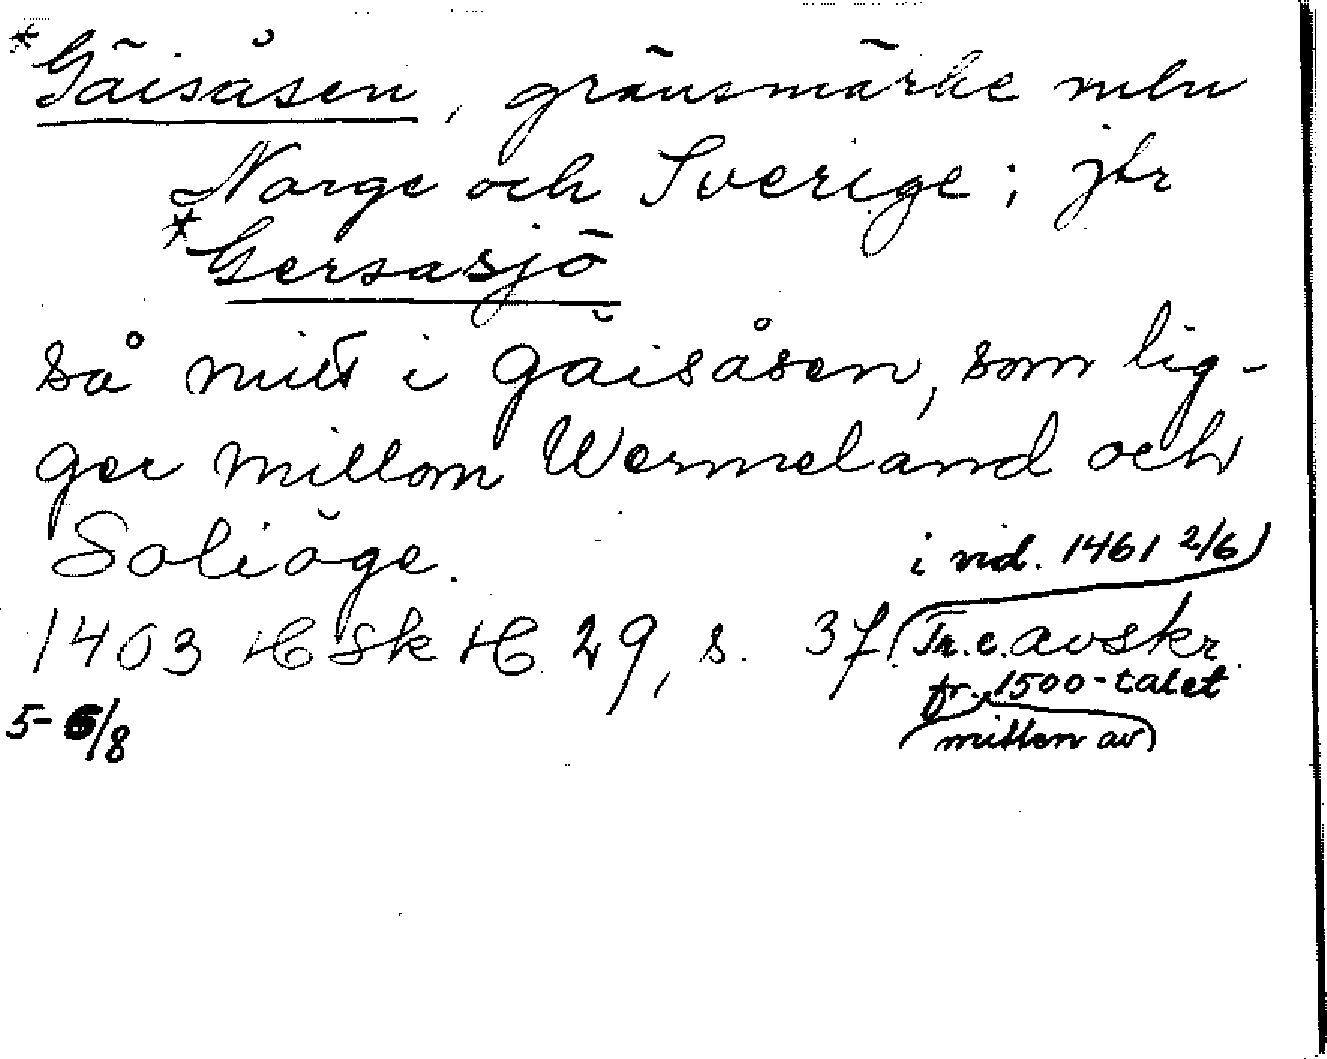 *Gäisåsen, gränsmärke mln
Norge och Sverige; jfr
*Gersasjö
så mitt i gäisåsen, som lig-
ger millom Wermeland och
Soliöge.
i vid. 1461 2/6)
1403 HSkH 29, s. 37 (Tr. e. avskr.
fr. 1500-talet
(mitten av)
5-6/8